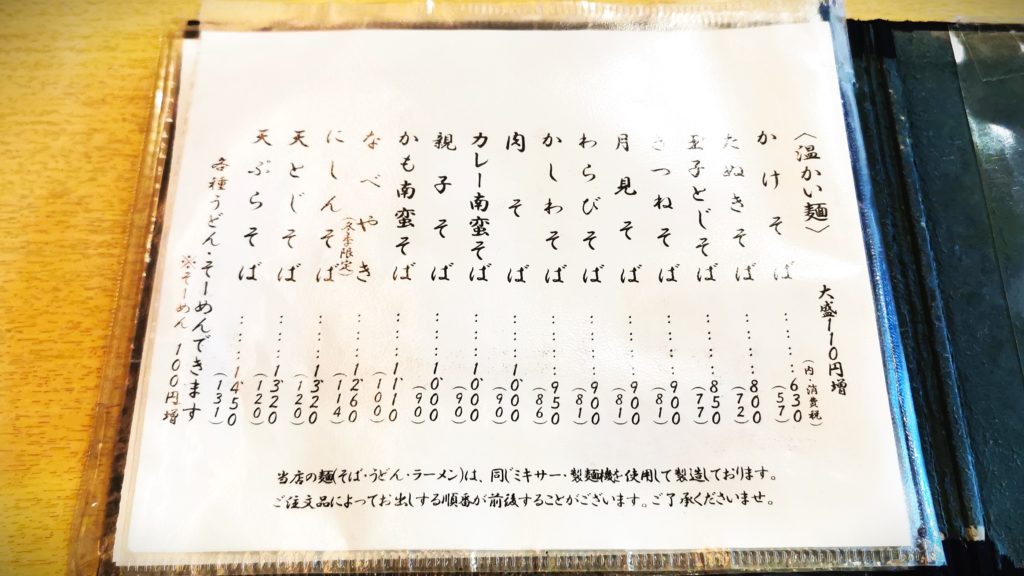 大盛110円増
〈温かい麺〉
(内 消費税)
かけそば………630(57)
たぬきそば………800(72)
玉子とじそば………850(77)
きつねそば………900(81)
月見そば………900(81)
わらびそば………900(81)
かしわそば………950(86)
肉そば………1,000(90)
カレー南蛮そば………1,000(90)
親子そば………1,000(90)
かも南蛮そば………1,110(100)
なべやき(冬季限定)………1,260(114)
にしんそば………1,320(120)
天とじそば………1,320(120)
天ぷらそば………1,450(131)
各種うどん・そーめんできます
※そーめん 100円増
当店の麺(そば・うどん・ラーメン)は、同じミキサー・製麺機を使用して製造しております。
ご注文品によってお出しする順番が前後することがございます。ご了承くださいませ。